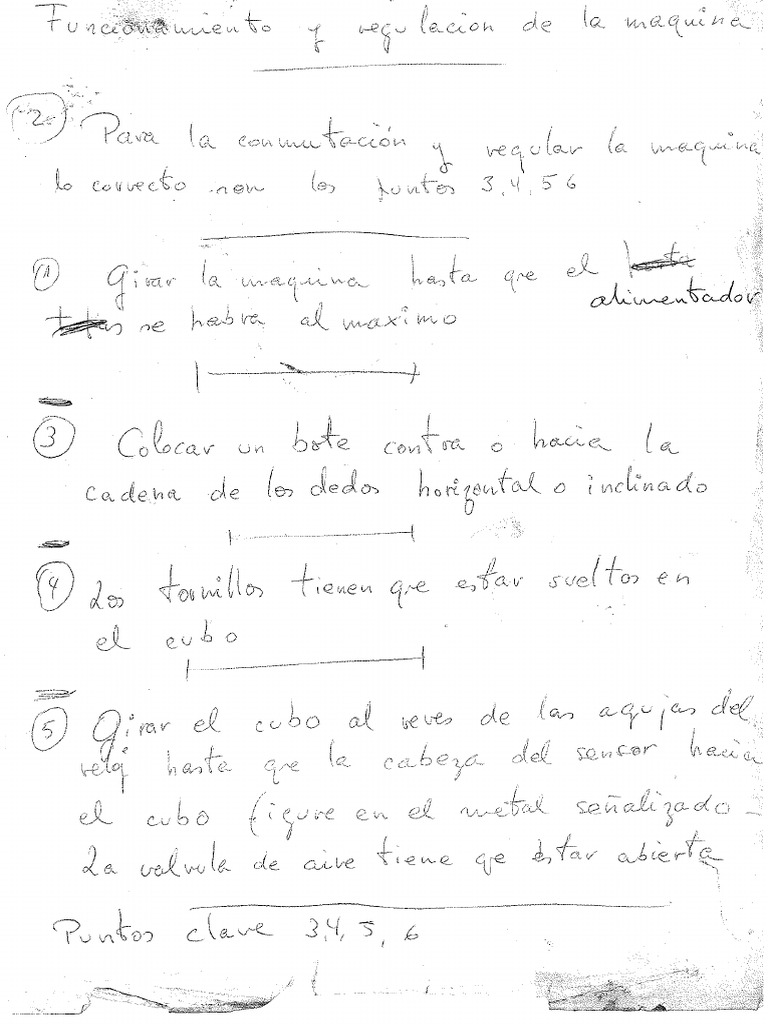 Funcionamiento y regulacion de la maquina
2. Para la conmutación y regular la maquina
lo correcto son los puntos 3, 4, 5 6
1 Girar la maquina hasta que el
alimentador
se habra al maximo
3 Colocar un bote contra o hacia la
cadena de los dedos horizontal o inclinado
4 Los tornillos tienen que estar sueltos en
el cubo
5 Girar el cubo al reves de las agujas del
reloj hasta que la cabeza del sensor hacia
el cubo figure en el metal señalizado -
La valvula de aire tiene qe estar abierta
Puntos clave 3,4, 5, 6